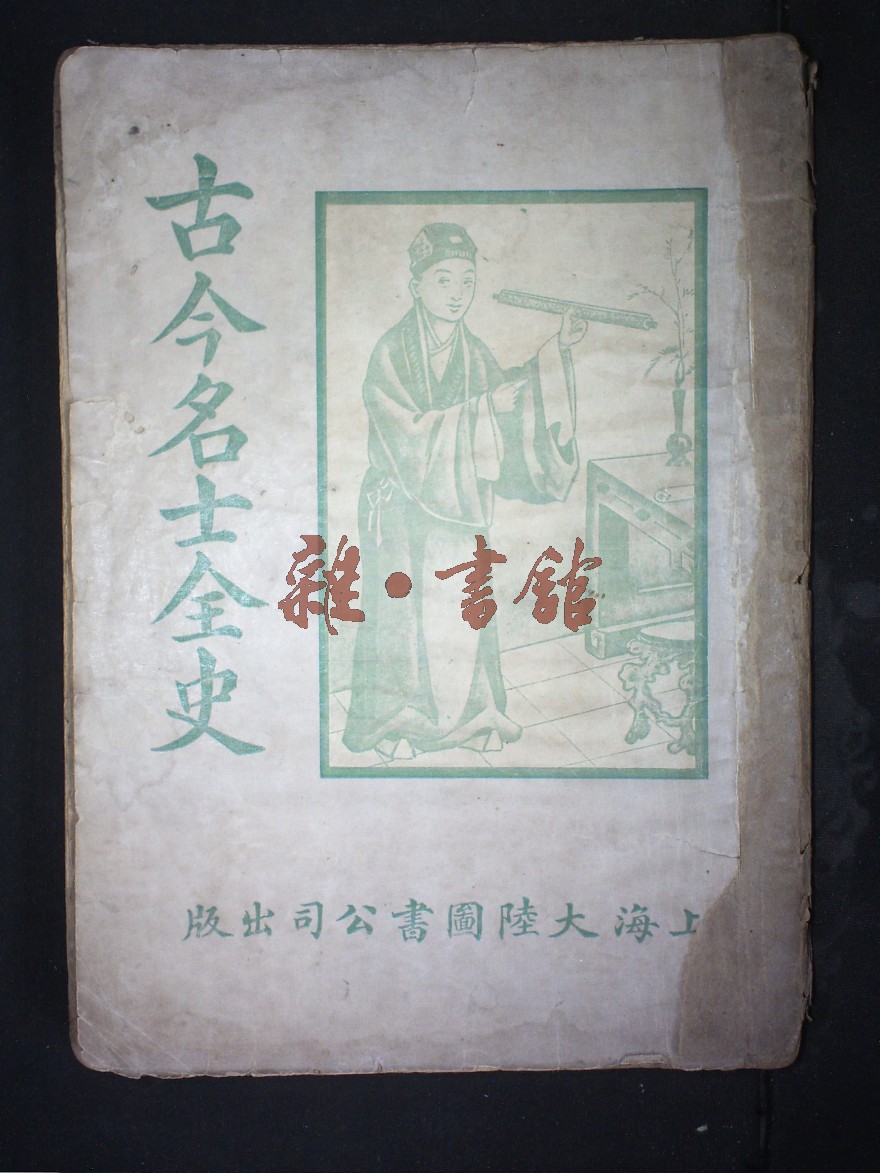 古今名士全史
雜·書館
上海大陸圖書公司出版